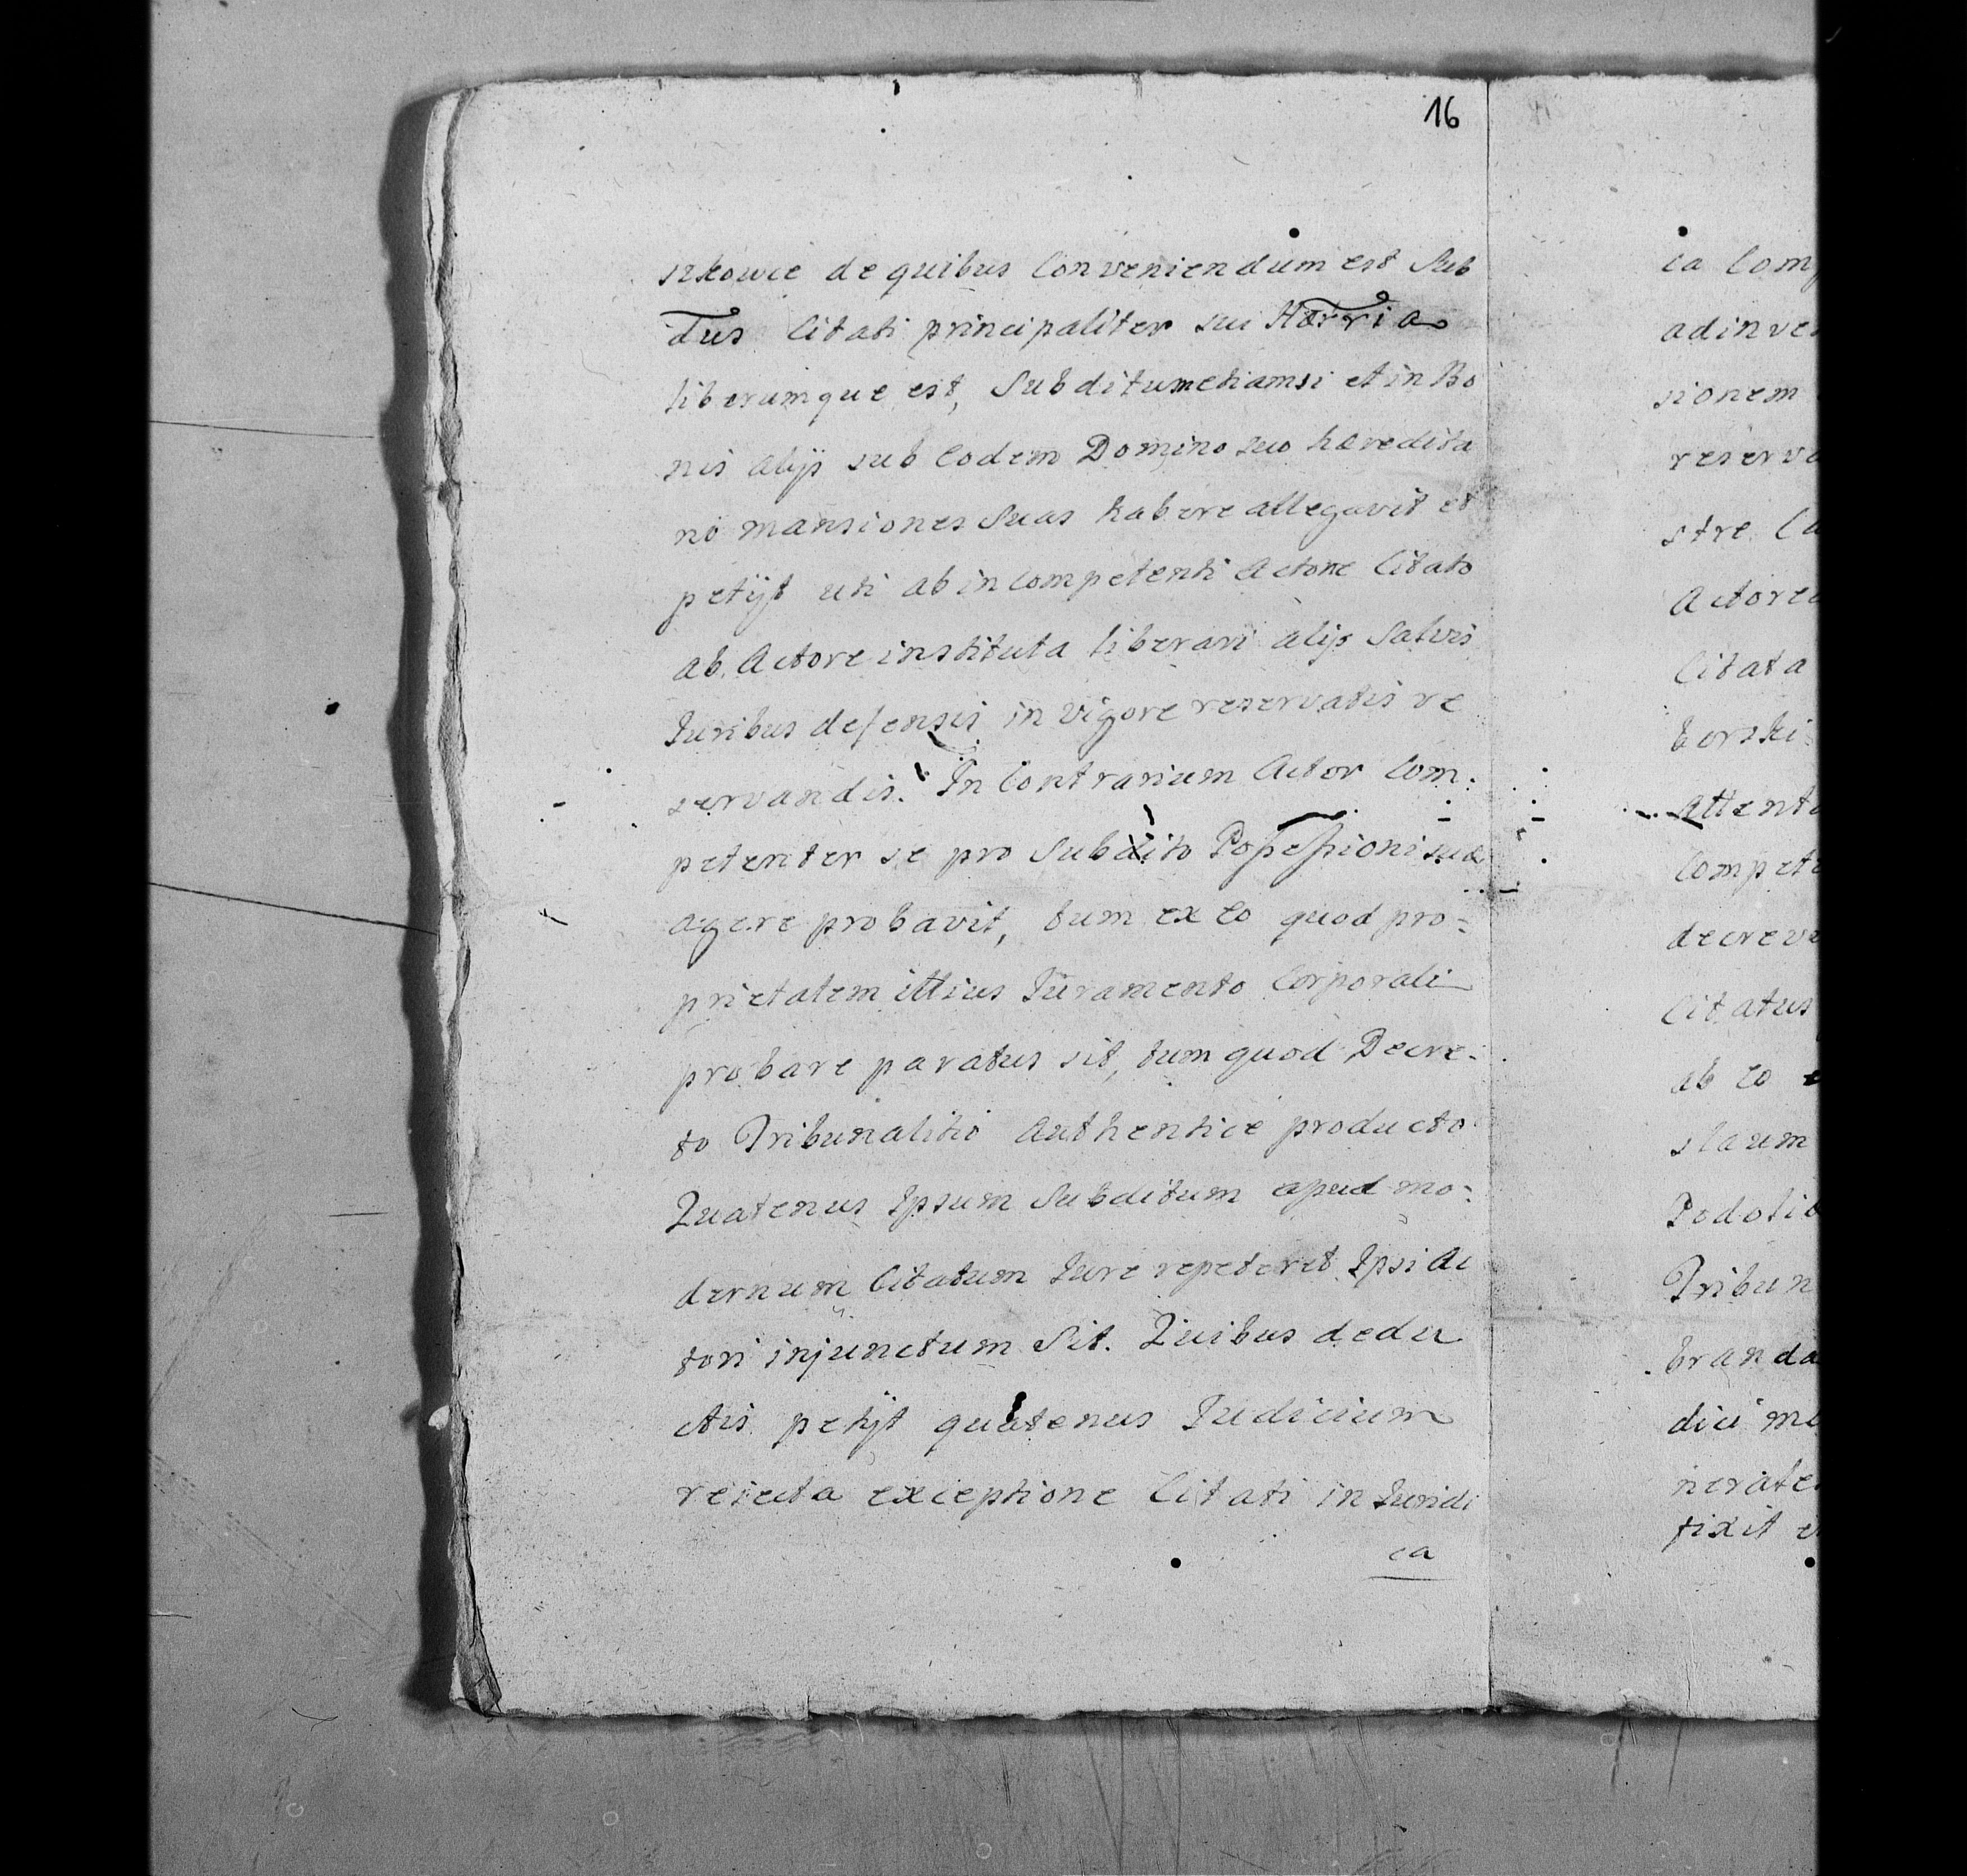 16
szkowce de quibus Conveniendum est Sub
dus Citati principaliter sui Hærria
liberumque est, Subditum etiamsi et in Bo
nis alijs sub Eodem Domino suo hæredita
rio mansiones Suas habere allegavit et
petijt uti ab incompetenti Actore Citato
ab Actore instituta liberari alijs Salvis
Juribus defensis in vigore reservatis re
servandis. In Contrarium Actor Com.
petenter se pro Subdito Possessioni suæ
agere probavit, tum ex Eo quod pro=
prietatem illius Juramento Corporali
probare paratus sit, tum quod Decre=
to Tribunalitio Authentice producto
Quatenus Ipsum Subditum apud mo=
dernum Citatum Jure repeteret Ipsi Ac
tori injunctum Sit. Quibus dedu
ctis petijt quatenus Judicium
reiecta exceptione Citati in Juridi
ca
ca Comp
adinve
sionem
reserva
stre Ca
Actorea
Citata
borski
Attenta
Compete
decreve
Citatus
ab Eo
slaum
Podolia
Tribun
branda
dici
nerate
fixit